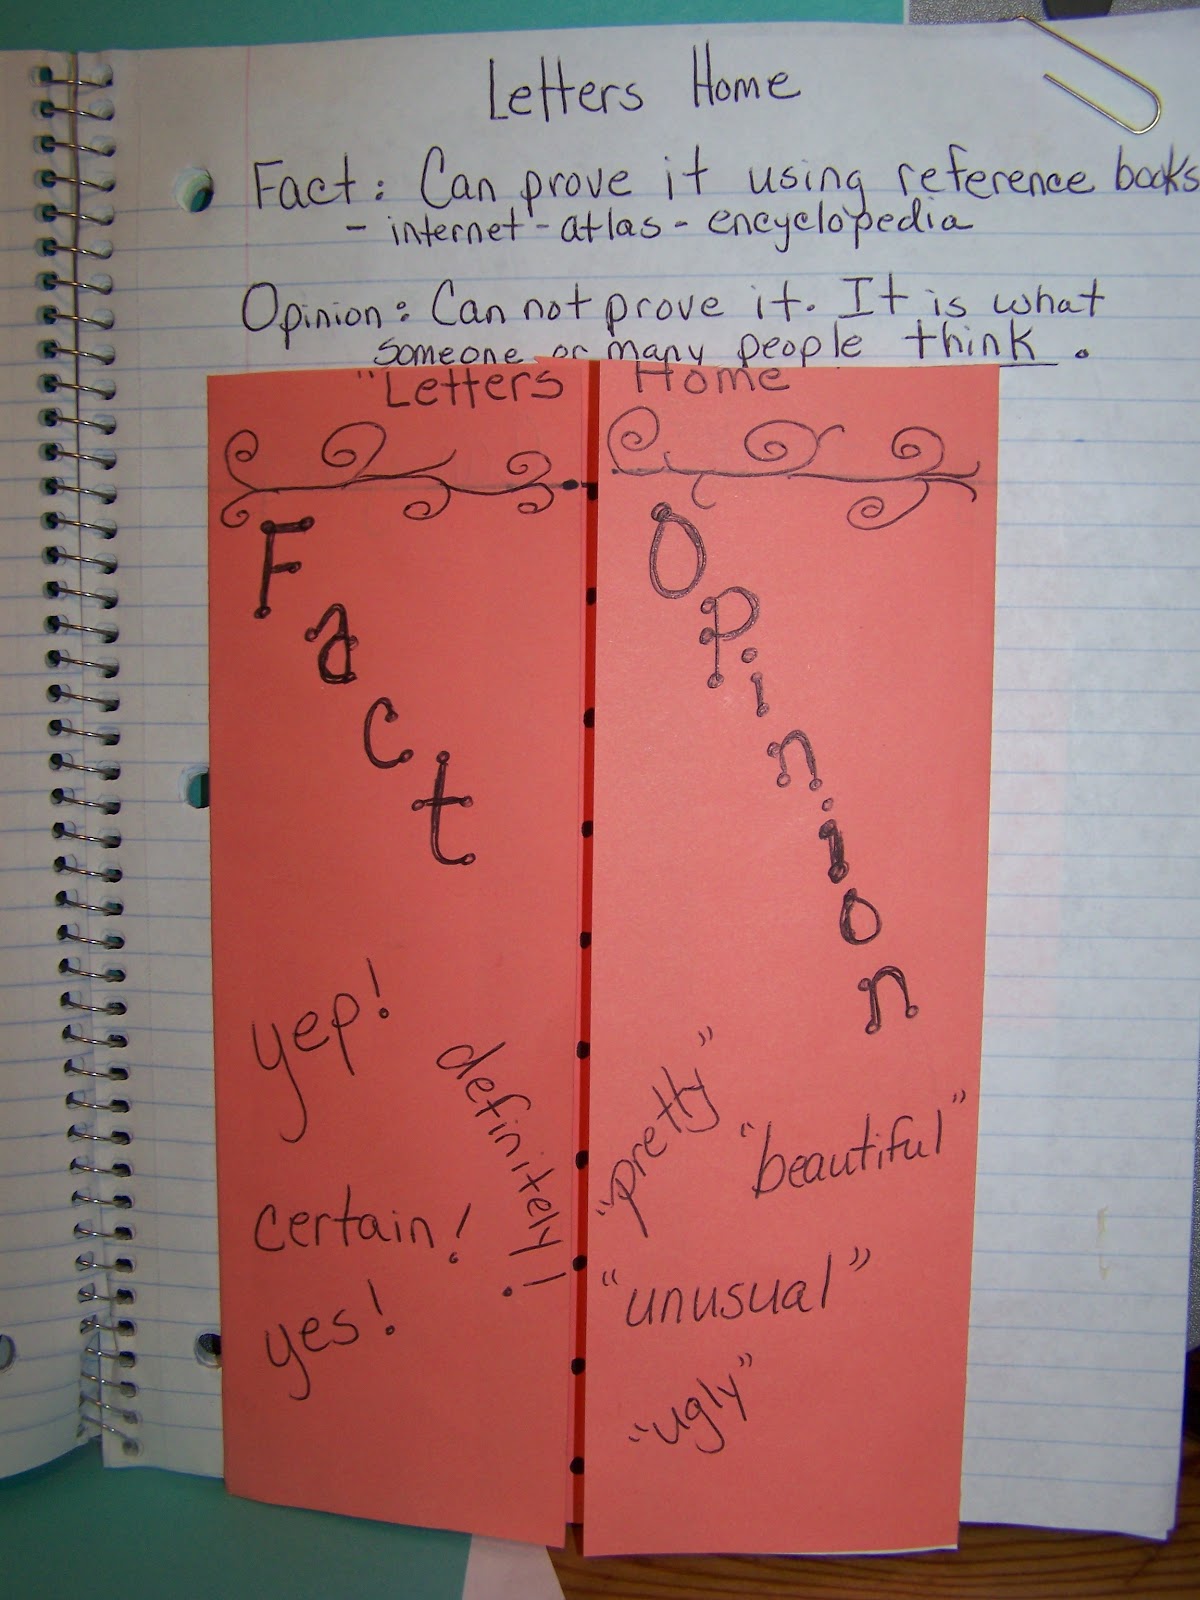 Letters Home
Fact: Can prove it using reference books
- internet - atlas - encyclopedia
Opinion: Can not prove it. It is what
someone or many people think.
"Letters Home
Fact
yep!
definitely!
certain!
yes!
Opinion
"pretty"
"beautiful"
"unusual"
"ugly"